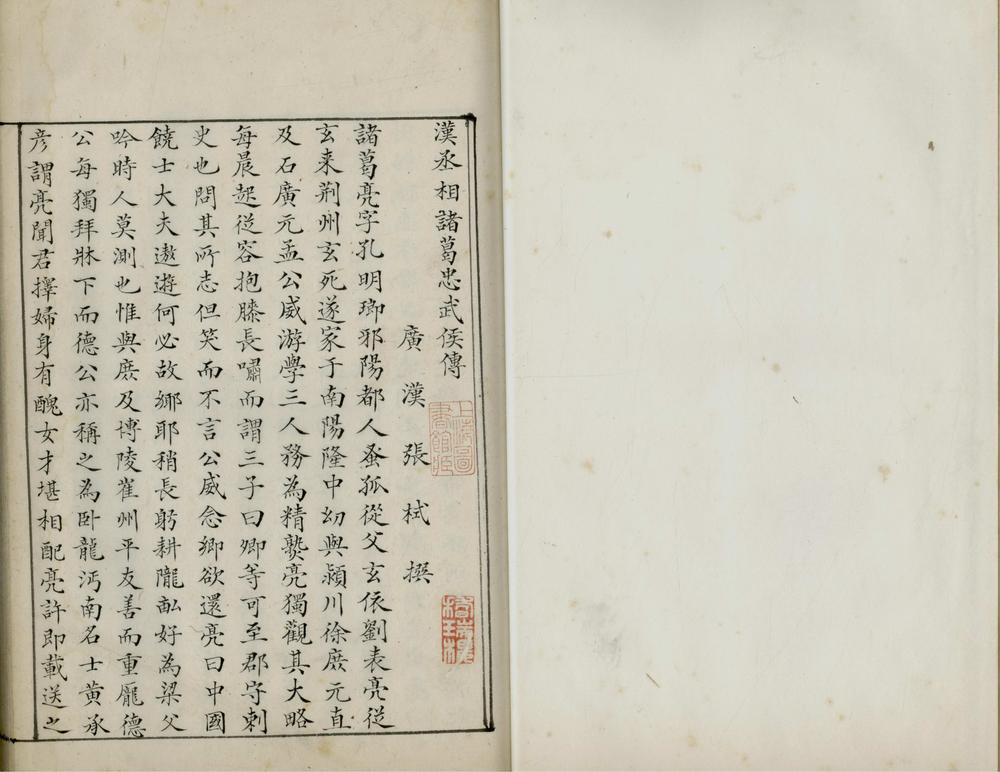 漢丞相諸葛忠武侯傳
廣漢張栻撰
上海圖書館臧
諸葛亮字孔明瑯邪陽都人蚤孤從父玄依劉表亮從
玄来荆州玄死遂家于南陽隆中幼與潁川徐庶元直
及石廣元孟公威游學三人務為精熟亮獨觀其大略
每晨起從容抱膝長嘯而謂三子曰卿等可至郡守刺
史也問其所志但笑而不言公威念鄉欲還亮曰中國
饒士大夫遨遊何必故鄉耶稍長躬耕隴畝好為梁父
吟時人莫測也惟與庶及博陵崔州平友善而重龐德
公每獨拜牀下而德公亦稱之為卧龍沔南名士黄承
彦謂亮聞君擇婦身有醜女才堪相配亮許即載送之